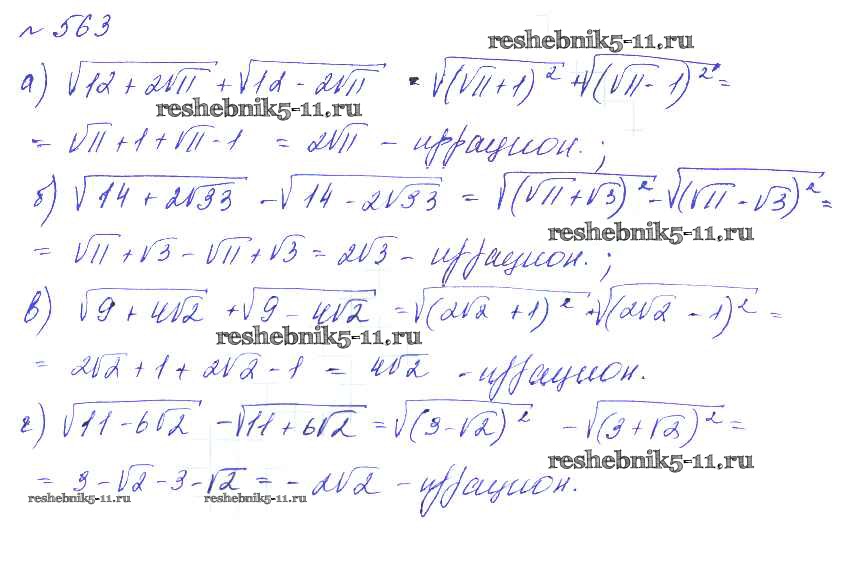 № 563
reshebnik5-11.ru
а) √(12 + 2√11) + √(12 - 2√11) = √((√11 + 1)²) + √((√11 - 1)²) =
reshebnik5-11.ru
= √11 + 1 + √11 - 1 = 2√11 - иррацион.;
б) √(14 + 2√33) - √(14 - 2√33) = √((√11 + √3)²) - √((√11 - √3)²) =
reshebnik5-11.ru
= √11 + √3 - √11 + √3 = 2√3 - иррацион.;
в) √(9 + 4√2) + √(9 - 4√2) = √((2√2 + 1)²) + √((2√2 - 1)²) =
reshebnik5-11.ru
= 2√2 + 1 + 2√2 - 1 = 4√2 - иррацион.
г) √(11 - 6√2) - √(11 + 6√2) = √((3 - √2)²) - √((3 + √2)²) =
reshebnik5-11.ru
= 3 - √2 - 3 - √2 = - 2√2 - иррацион.
reshebnik5-11.ru reshebnik5-11.ru